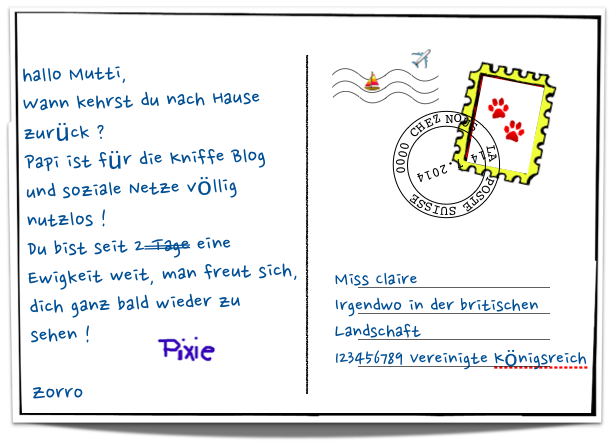 hallo Mutti,
wann kehrst du nach Hause
zurück ?
Papi ist für die Kniffe Blog
und soziale Netze völlig
nutzlos !
Du bist seit 2 Tage eine
Ewigkeit weit, man freut sich,
dich ganz bald wieder zu
sehen !
Pixie
zorro
0000 CHEZ NOUS
14 . 2014
LA POSTE SUISSE
Miss Claire
Irgendwo in der britischen
Landschaft
123456789 vereinigte Königsreich